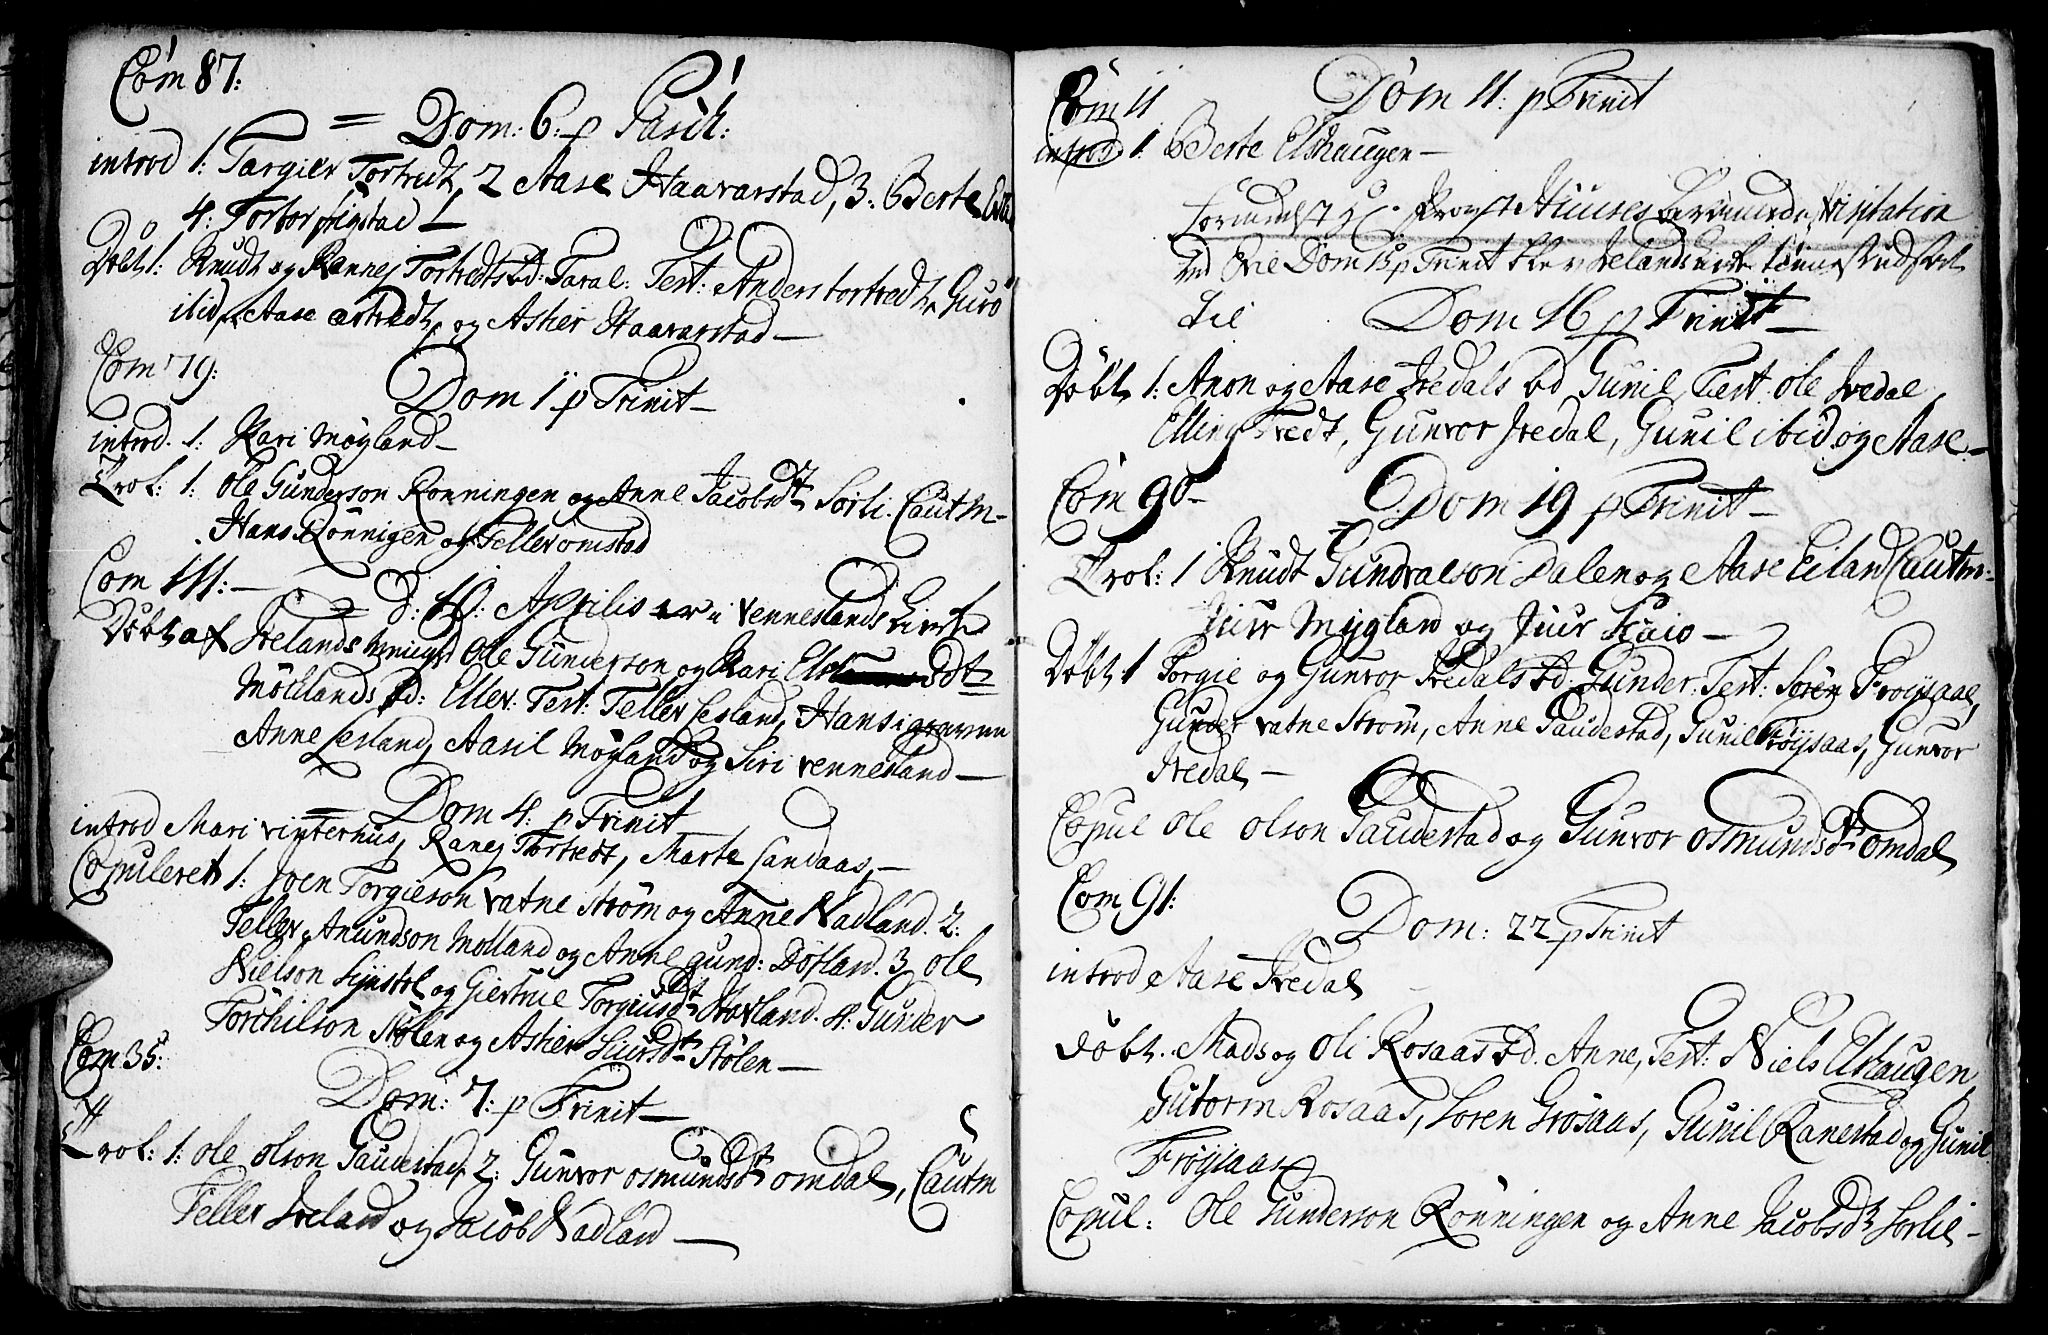 Com 87:
Dom: 6 p Pasch:
introd 1: Targier Tortredt, 2 Aase Haavarstad, 3. Berte
4. Torbor
Døbt 1: Knudt og Rannej Tortredts bd: Taral: Test: Anders tortredt, Guro
ibid, Aase ortredt, og Asher Haavarstad —
Com 79:
Dom 1 p Trinit —
introd. 1: Kari Møgland —
Trol: 1: Ole Gunderson Rønningen og Anne Jacobsdt Sørli. Cautm —
Hans Rønnigen og Teller omstad
Com 111: —
d: 10: Aprilis i Venneslands Kirke
Døbt af Irelands Ole Gunderson og Kari dt
Møklands bd: Ellev: Test: Teller Lesland, Hans i graven
Anne Lesland, Aasil Møgland og Siri vennesland —
Dom 4: p Trinit —
introd Mari vinterhus, Ranej Tortredt, Marte Sandaas, —
Copuleret 1: Joen Torgieson Vatne Strøm og Anne Nadland. 2:
Teller Anundson Molland og Anne gund: Døfland. 3 Ole
Nielson og Giertrue Torgiusdt Hovland. 4: Gunder
Torchilson Stølen og Asher Siursdt Stølen —
Com 35:
Dom: 7: p Trinit —
Trol: 1: ole olson Gaudestad, 2: Gunvor osmundsdt omdal, Cautm
Teller Ireland og Jacob Nadland —
Com 11
Dom 11: p Trinit
introd 1: Berte Elshaugen —
Visitation
Dom 15 p Trinit blev Irelands
til
Dom 16 p Trinit —
Døbt 1: Anon og Aase Iredals bd Gunil, Test: ole Iredal,
Elling Tredt, Gunvor Iredal, Gunil ibid og Aase —
Com 90 —
Dom 19 p Trinit —
Trol: 1 Knudt Gundvalson Dalen og Aase Eiland Cautm:
Siur Mygland og Siur —
Døbt 1 Torgie og Gunvor Iredals bd: Gunder. Test: Søren Frøysaas,
Gunder vatne Strøm, Anne Gaudestad, Gunil Frøysaas, Gunvor
Iredal —
Copul Ole olson Gaudestad og Gunvor osmundsdt omdal
Com 91:
Dom: 22 p Trinit
introd Aase Iredal
Døbt. Mads og Oli Rosaas bd. Anne, Test: Niels Elshaugen,
Gutorm Rosaas, Soren Grosaas, Gunil Ranestad og Gunil
Frøysaas
Copul: Ole Gunderson Rønningen og Anne Jacobsdt Sorlie —